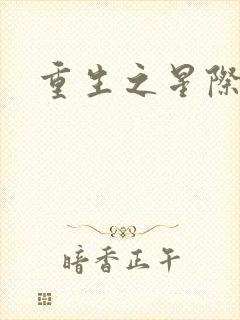 重生之星際
暗香正午